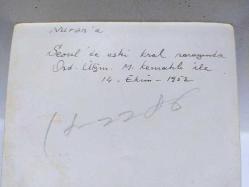 Nuran'a
Seoul'de eski kral sarayında
Ord. Üğm. M. Kemahlı ile
14. Ekim - 1952
12-2286